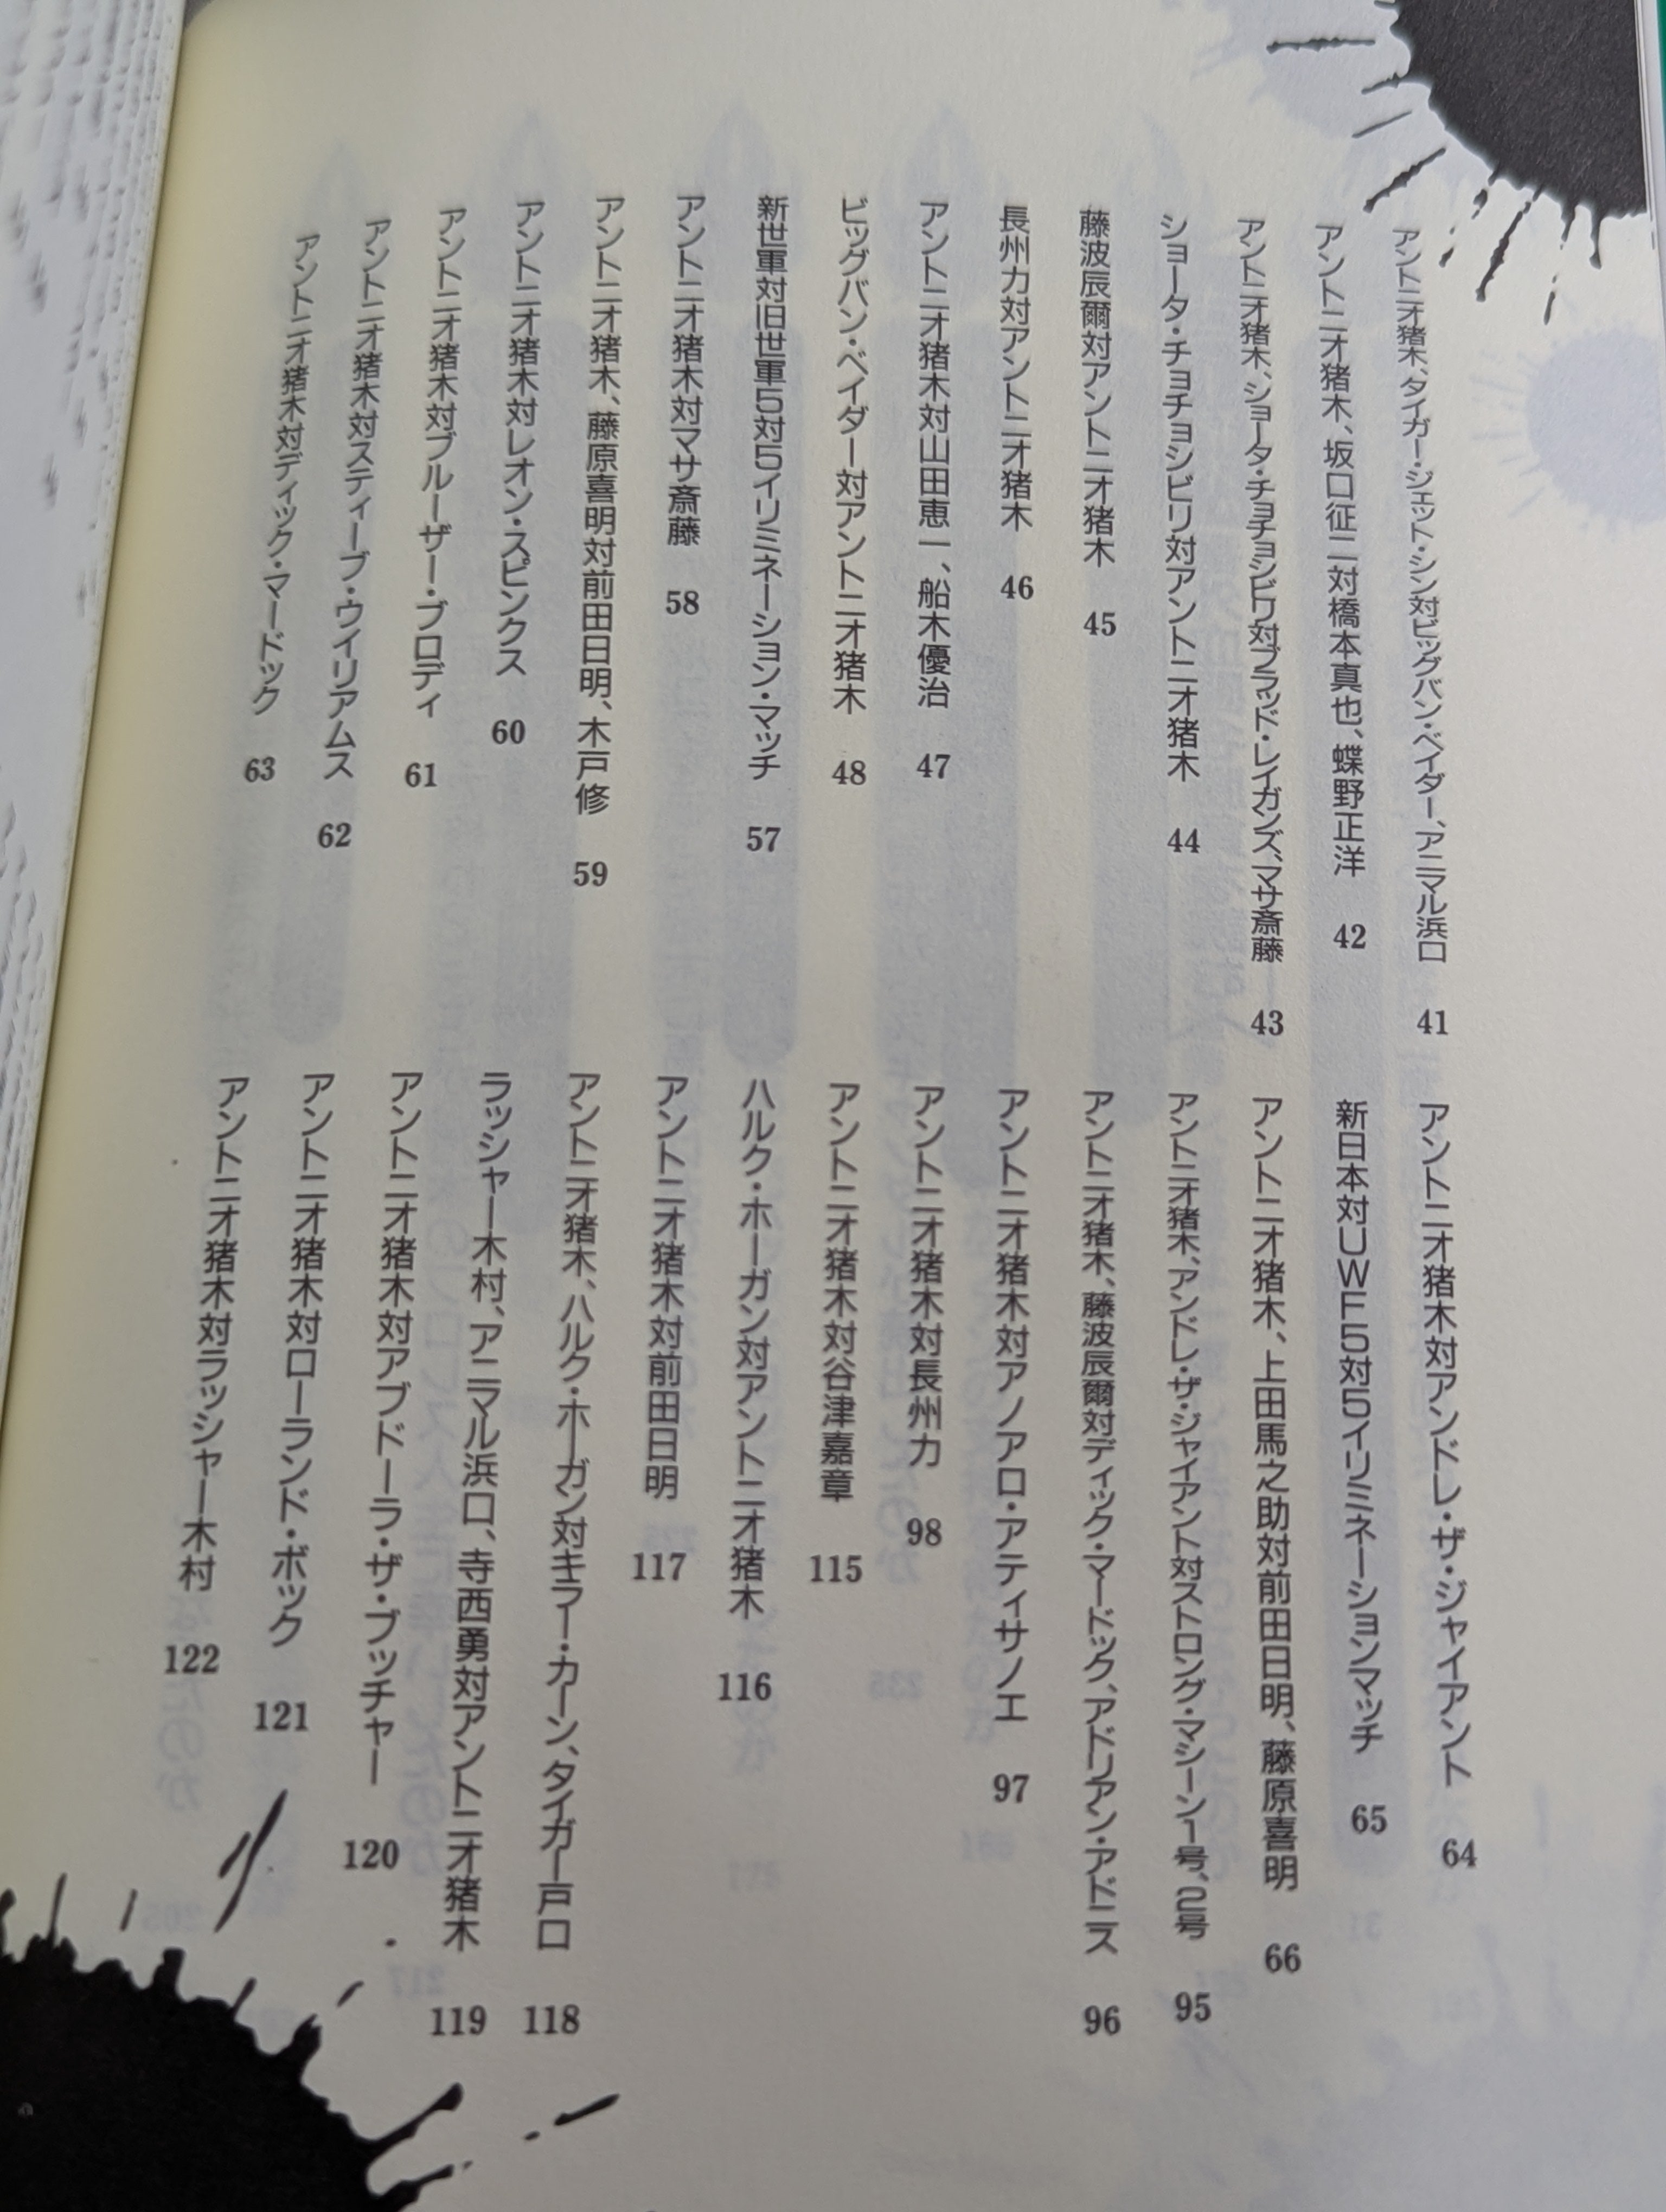 アントニオ猪木、タイガー・ジェット・シン対ビッグバン・ベイダー、アニマル浜口 41
アントニオ猪木、坂口征二対橋本真也、蝶野正洋 42
アントニオ猪木、ショータ・チョチョシビリ対ブラッド・レイガンズ、マサ斎藤 43
ショータ・チョチョシビリ対アントニオ猪木 44
藤波辰爾対アントニオ猪木 45
長州力対アントニオ猪木 46
アントニオ猪木対山田恵一、船木優治 47
ビッグバン・ベイダー対アントニオ猪木 48
新世軍対旧世軍5対5イリミネーション・マッチ 57
アントニオ猪木対マサ斎藤 58
アントニオ猪木、藤原喜明対前田日明、木戸修 59
アントニオ猪木対レオン・スピンクス 60
アントニオ猪木対ブルーザー・ブロディ 61
アントニオ猪木対スティーブ・ウイリアムス 62
アントニオ猪木対ディック・マードック 63
アントニオ猪木対アンドレ・ザ・ジャイアント 64
新日本対UWF5対5イリミネーションマッチ 65
アントニオ猪木、上田馬之助対前田日明、藤原喜明 66
アントニオ猪木、アンドレ・ザ・ジャイアント対ストロング・マシーン1号、2号 95
アントニオ猪木、藤波辰爾対ディック・マードック、アドリアン・アドニス 96
アントニオ猪木対アノアロ・アティサノエ 97
アントニオ猪木対長州力 98
アントニオ猪木対谷津嘉章 115
ハルク・ホーガン対アントニオ猪木 116
アントニオ猪木対前田日明 117
アントニオ猪木、ハルク・ホーガン対キラー・カーン、タイガー戸口 118
ラッシャー木村、アニマル浜口、寺西勇対アントニオ猪木 119
アントニオ猪木対アブドーラ・ザ・ブッチャー 120
アントニオ猪木対ローランド・ボック 121
アントニオ猪木対ラッシャー木村 122